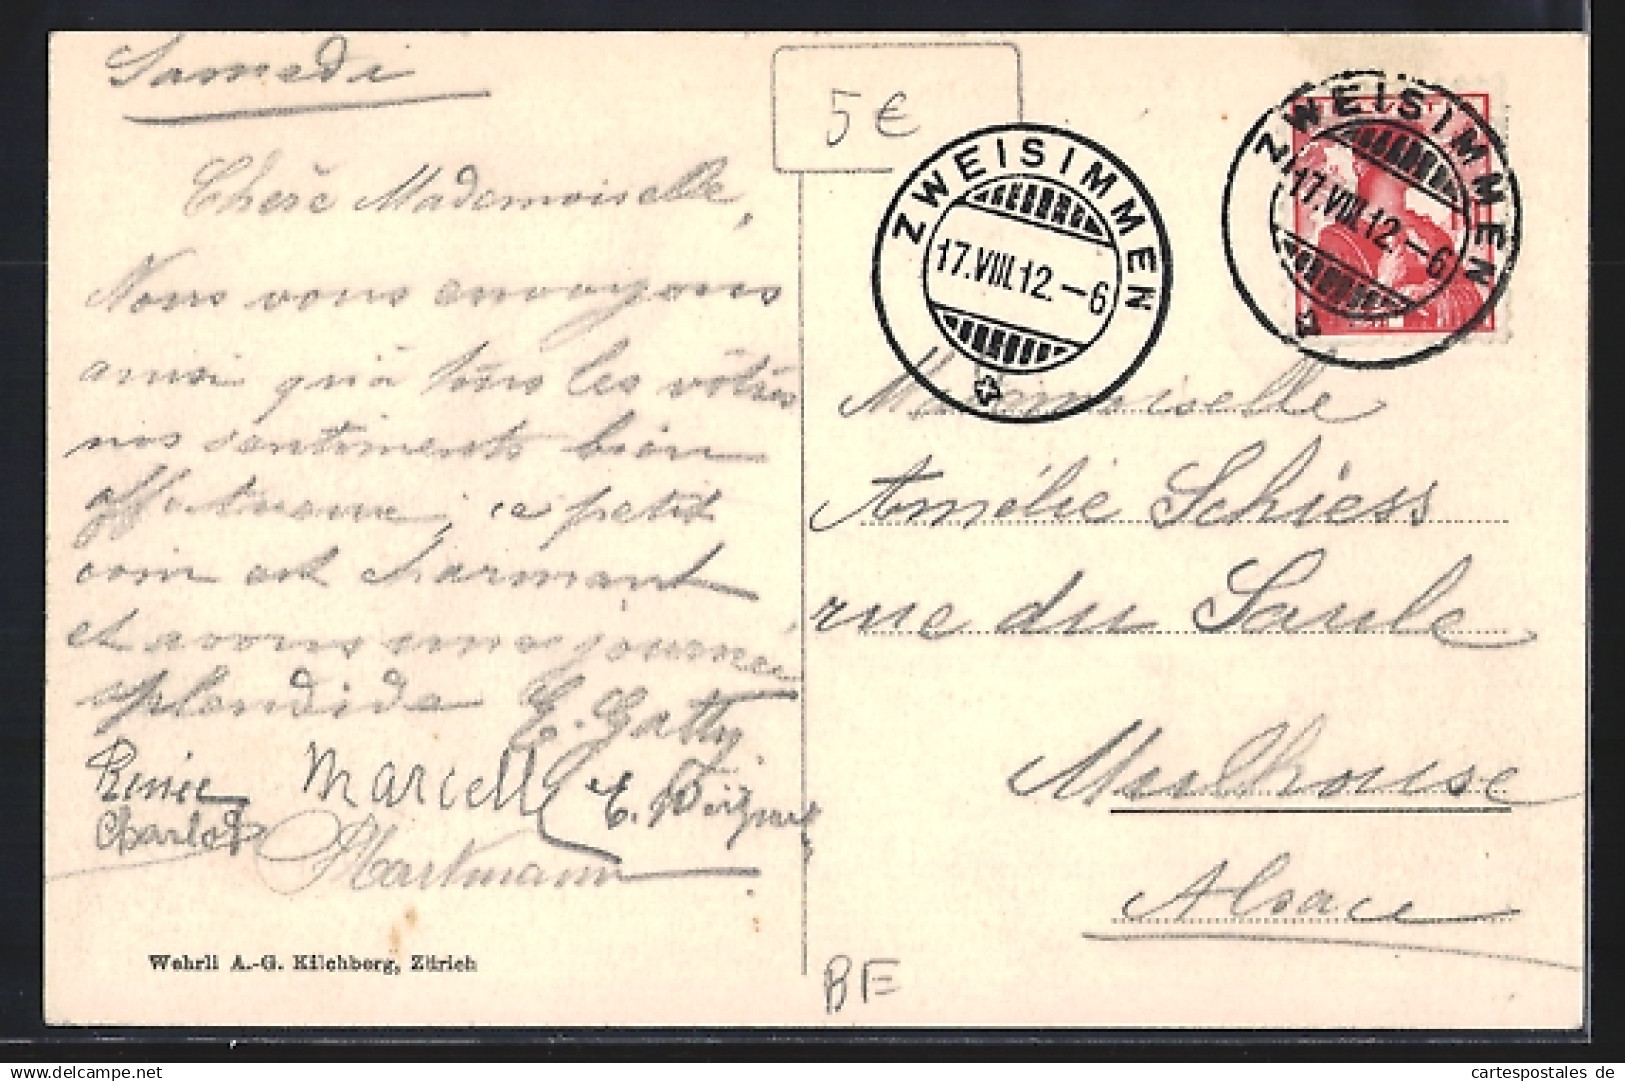 Samedi
Chère Mademoiselle,
Nous vous envoyons
ainsi qu'à tous les vôtres
nos sentiments bien
affectueux, ce petit
coin est charmant
et avons une journée
splendide E. Gatty
Renée Marcelle E.
Charles Hartmann
Wehrli A.-G. Kilchberg, Zürich
5 €
ZWEISIMMEN
17.VIII.12.-6
ZWEISIMMEN
17.VIII.12.-6
Mademoiselle
Amélie Schiess
rue du Saule
Mulhouse
Alsace
BE
cartespostales de